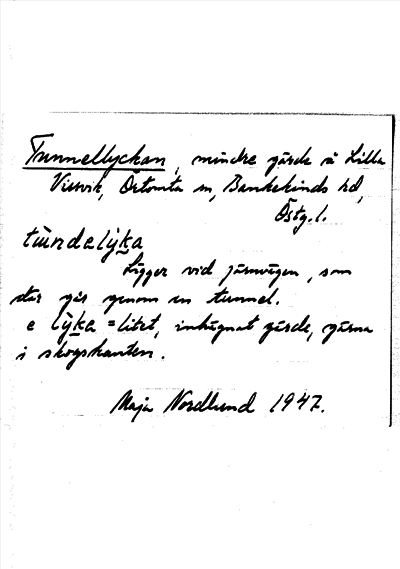 Tunnellyckan, mindre gärde å Lilla
Viervik, Örtomta sn, Bankekinds hd,
Östg.l.
tùndalỳka
Ligger vid järnvägen, som
där går genom en tunnel.
e lỳka = litet, inhägnat gärde, gärna
i skogskanten.
Maja Nordlund 1947.